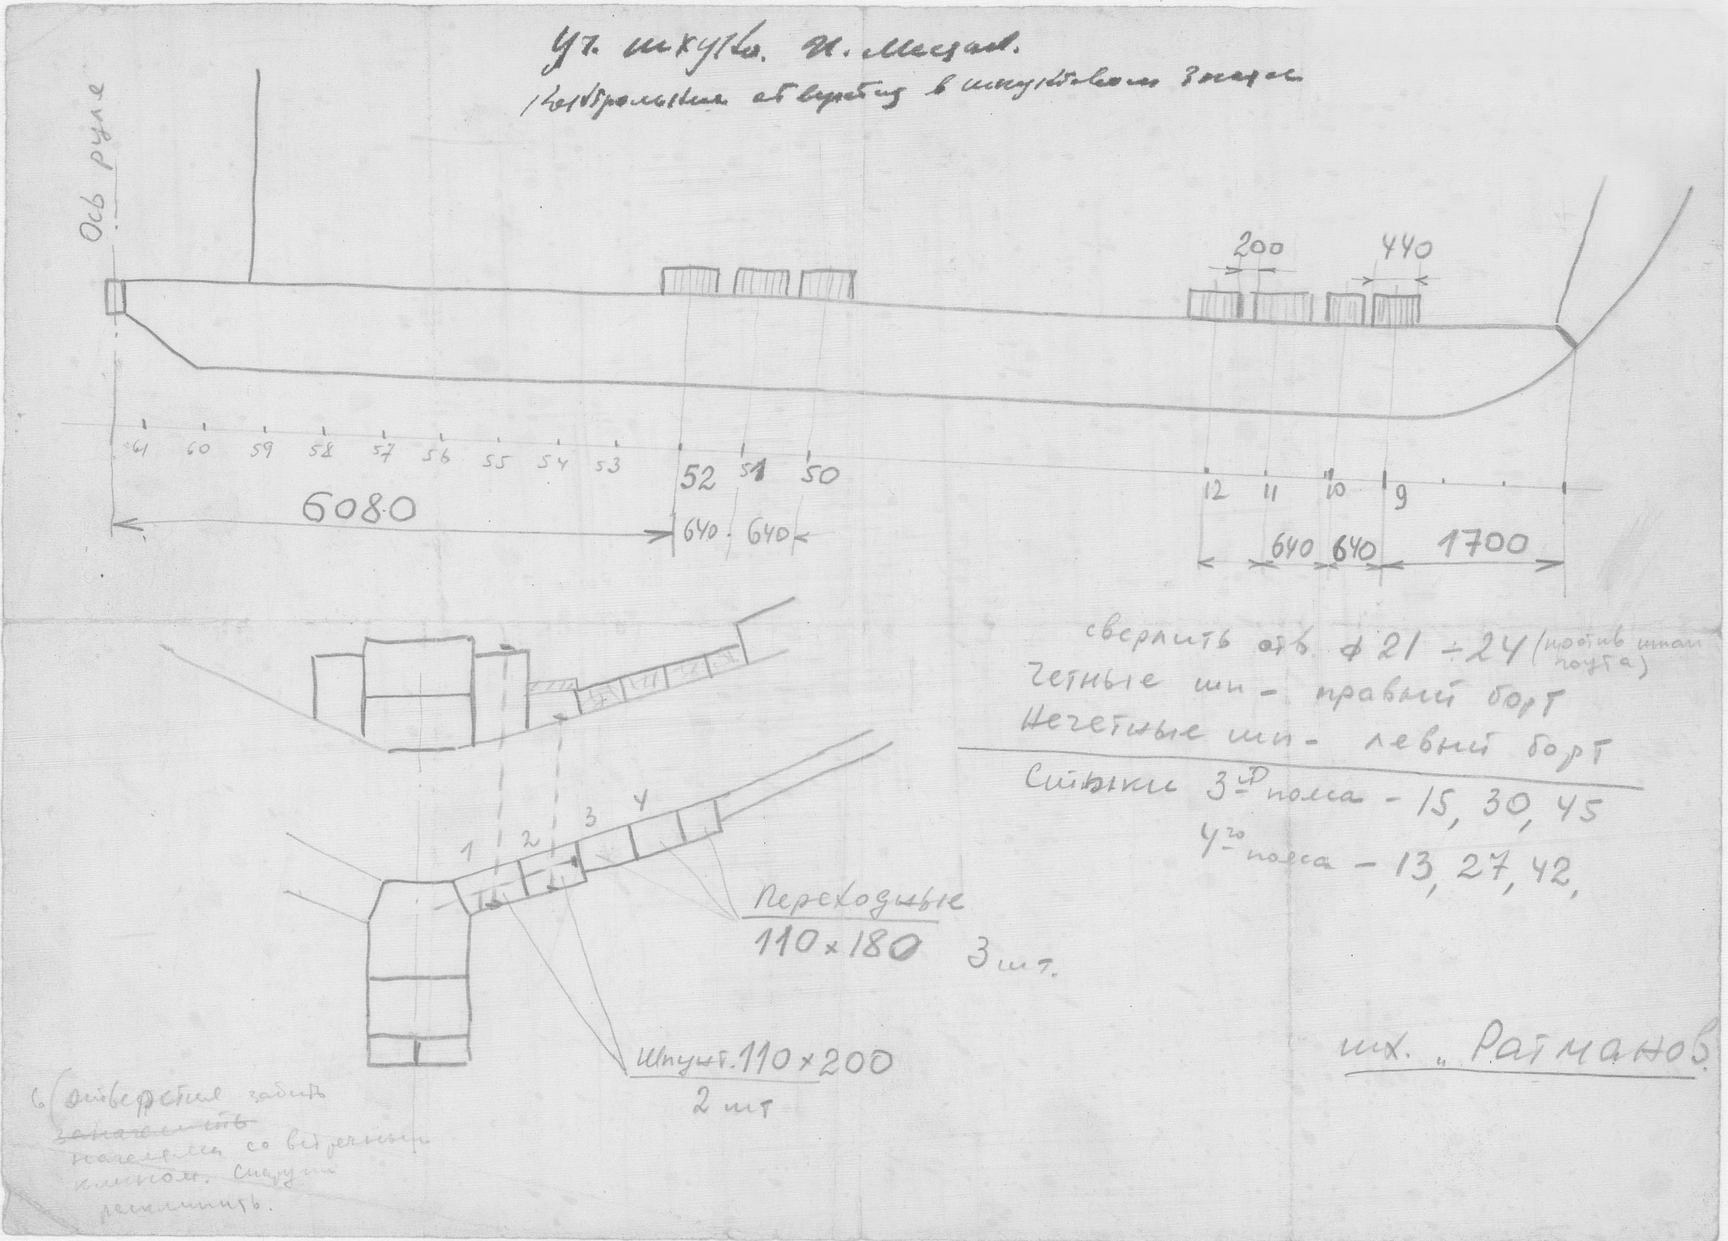 Уч. шхуны. И.
Контрольные отверстия в шпунтовом
Ось руля
200
440
61 60 59 58 57 56 55 54 53 52 51 50
12 11 10 9
6080
640 640
640 640 1700
сверлить отв ϕ 21 ÷ 24 (против шпан
гоута)
Четные шп - правый борт
Нечетные шп - левый борт
Стыки 3го пояса - 15, 30, 45
4го пояса - 13, 27, 42,
1 2 3 4
Переходные
110 x 180 3 шт.
Шпунт. 110 x 200
2 шт
шх. „Ратманов.
отверстия забить
нагелями со встречным
клином. Снаружи
расклинить.